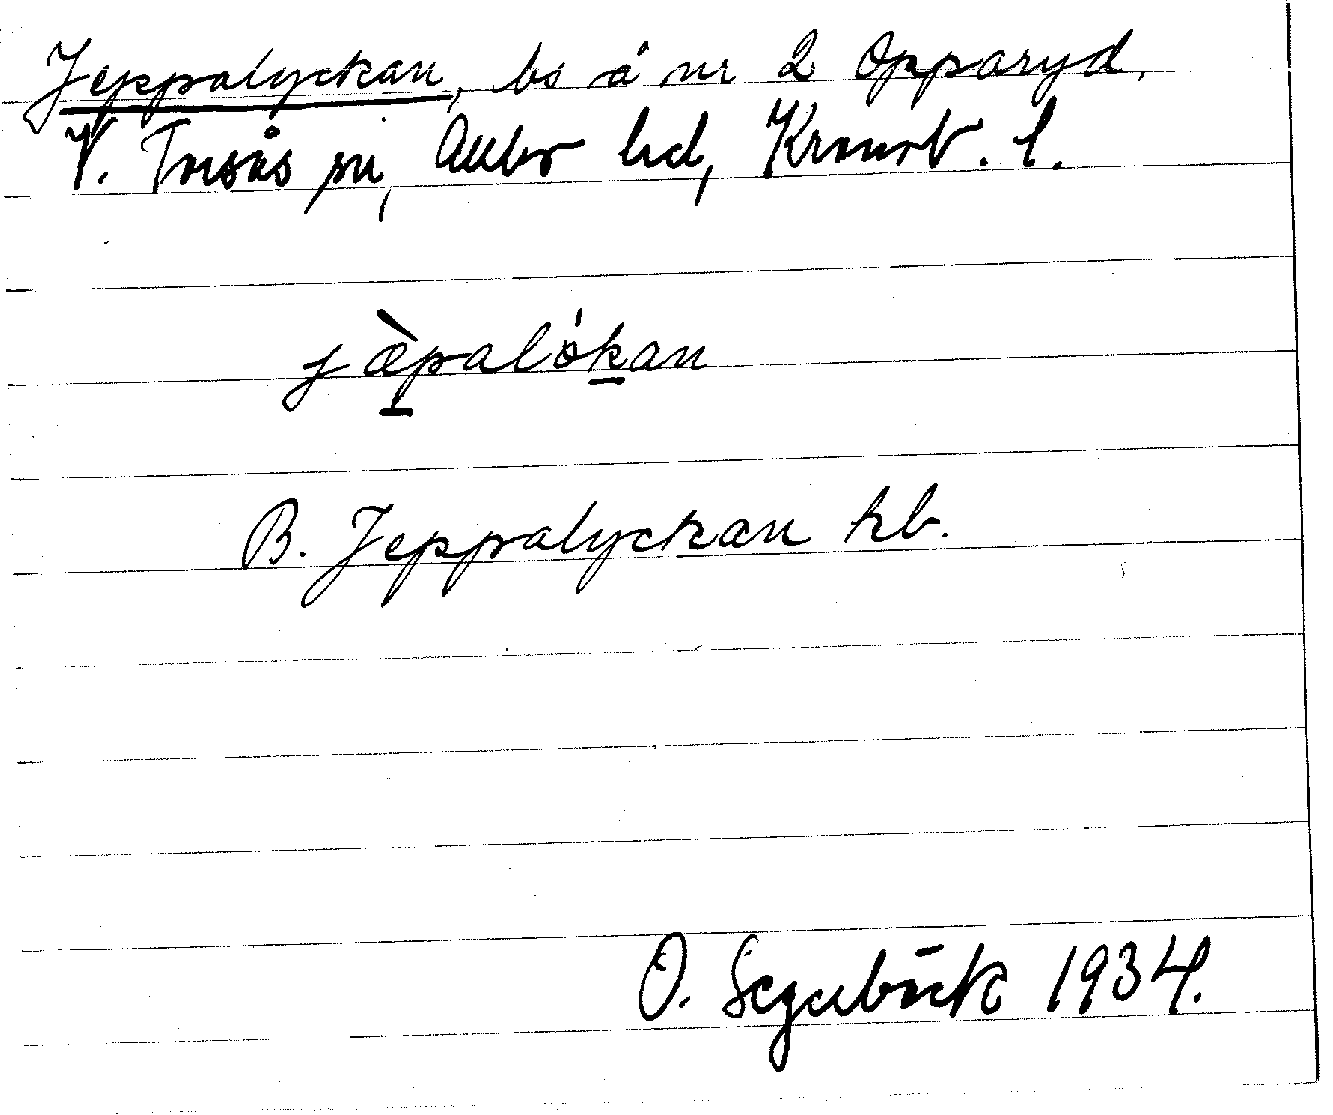 Jeppalyckan, bs å nr 2 Opparyd,
V. Torsås sn, Allbo hd, Kronob. l.
jæ̀palókan
B. Jeppalyckan kb.
O. Segerbäck 1934.